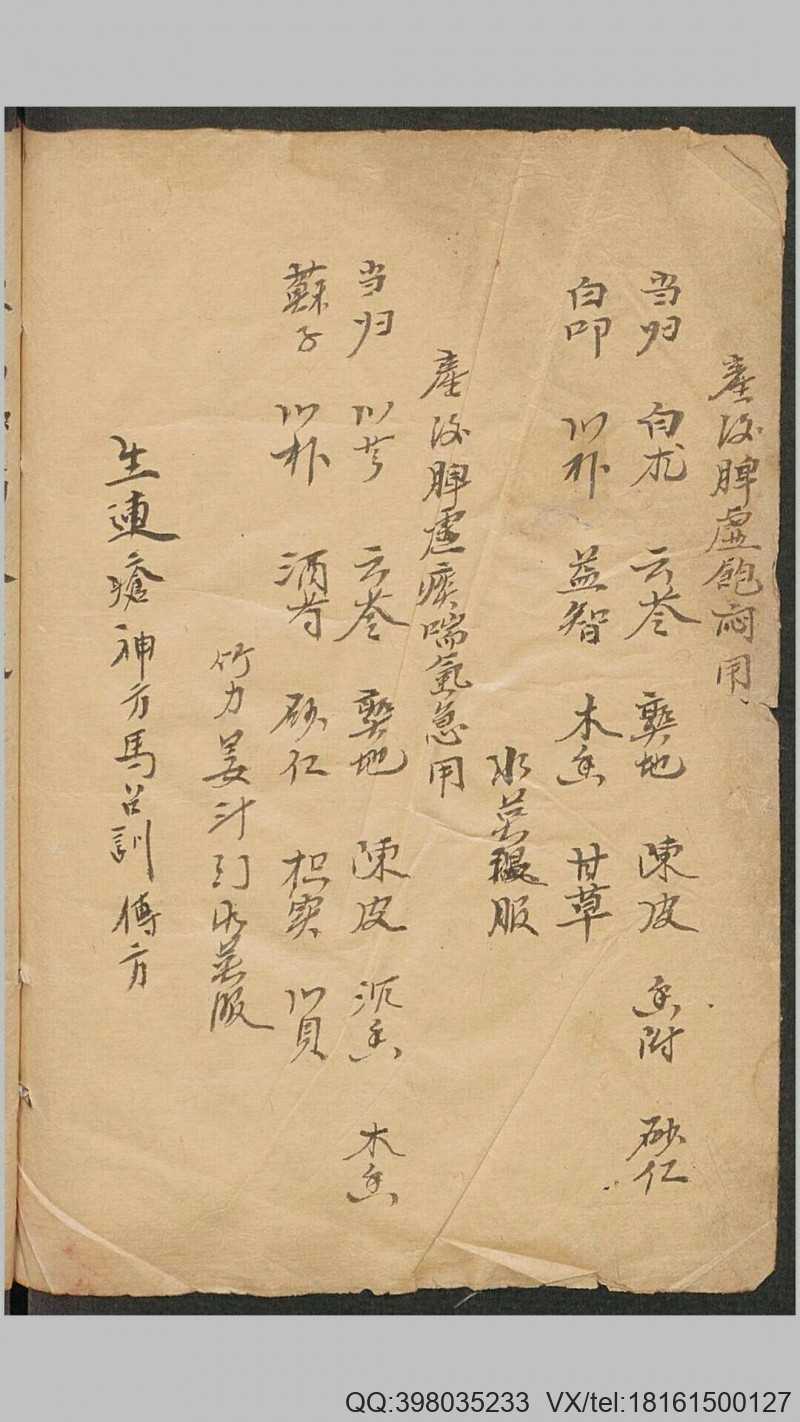 產後脾虛飽悶用
当归 白朮 云苓 熟地 陳皮 香附 砂仁
白叩 川朴 益智 木香 甘草
水煎温服
產後脾虛痰喘氣急用
当归 川芎 云苓 熟地 陳皮 沉香 木香
蘇子 川朴 酒芍 砂仁 枳实 川貝
竹力姜汁引水煎服
生連瘡神方馬召訓傳方
QQ:398035233 VX/tel:18161500127